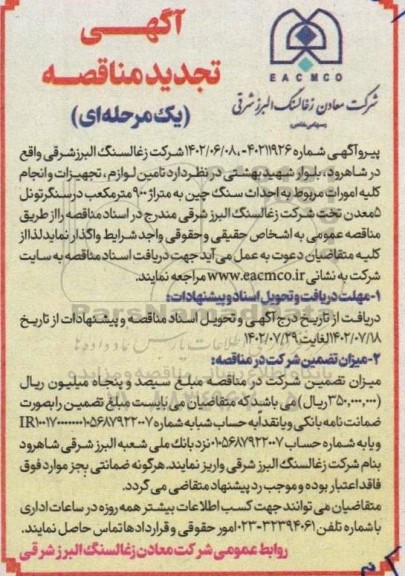 آگهی
تجدید مناقصه
(یک مرحله‌ای)
EACMCO
شرکت معادن زغالسنگ البرز شرقی
(سهامی خاص)
پیرو آگهی شماره ۴۰۲۱۱۹۲۶-۱۴۰۲/۰۶/۰۸، شرکت زغالسنگ البرز شرقی واقع
در شاهرود، بلوار شهید بهشتی در نظر دارد تامین لوازم، تجهیزات و انجام
کلیه امورات مربوط به احداث سنگ چین به متراژ ۹۰۰ مترمکعب در سنگر تونل
۵ معدن تخت شرکت زغالسنگ البرز شرقی مندرج در اسناد مناقصه را از طریق
مناقصه عمومی به اشخاص حقیقی و حقوقی واجد شرایط واگذار نماید لذا از
کلیه متقاضیان دعوت به عمل می آید جهت دریافت اسناد مناقصه به سایت
شرکت به نشانی www.eacmco.ir مراجعه نمایند.
۱-مهلت دریافت و تحویل اسناد و پیشنهادات:
دریافت از تاریخ درج آگهی و تحویل اسناد مناقصه و پیشنهادات از تاریخ
۱۴۰۲/۰۷/۱۸ لغایت ۱۴۰۲/۰۷/۲۹
۲-میزان تضمین شرکت در مناقصه:
میزان تضمین شرکت در مناقصه مبلغ سیصد و پنجاه میلیون ریال
(۳۵۰,۰۰۰,۰۰۰ ریال) می باشد که متقاضیان می بایست مبلغ تضمین را بصورت
ضمانت نامه بانکی و یا نقد به حساب شبا به شماره
و یا به شماره حساب ۰۱۰۵۶۸۷۹۲۲۰۰۷ نزد بانک ملی شعبه البرز شرقی شاهرود
بنام شرکت زغالسنگ البرز شرقی واریز نمایند. هرگونه ضمانتی بجز موارد فوق
فاقد اعتبار بوده و موجب رد پیشنهاد متقاضی می گردد.
متقاضیان می توانند جهت کسب اطلاعات بیشتر همه روزه در ساعات اداری
با شماره تلفن ۳۲۳۹۴۰۶۱-۰۲۳ امور حقوقی و قراردادها تماس حاصل نمایند.
روابط عمومی شرکت معادن زغالسنگ البرز شرقی